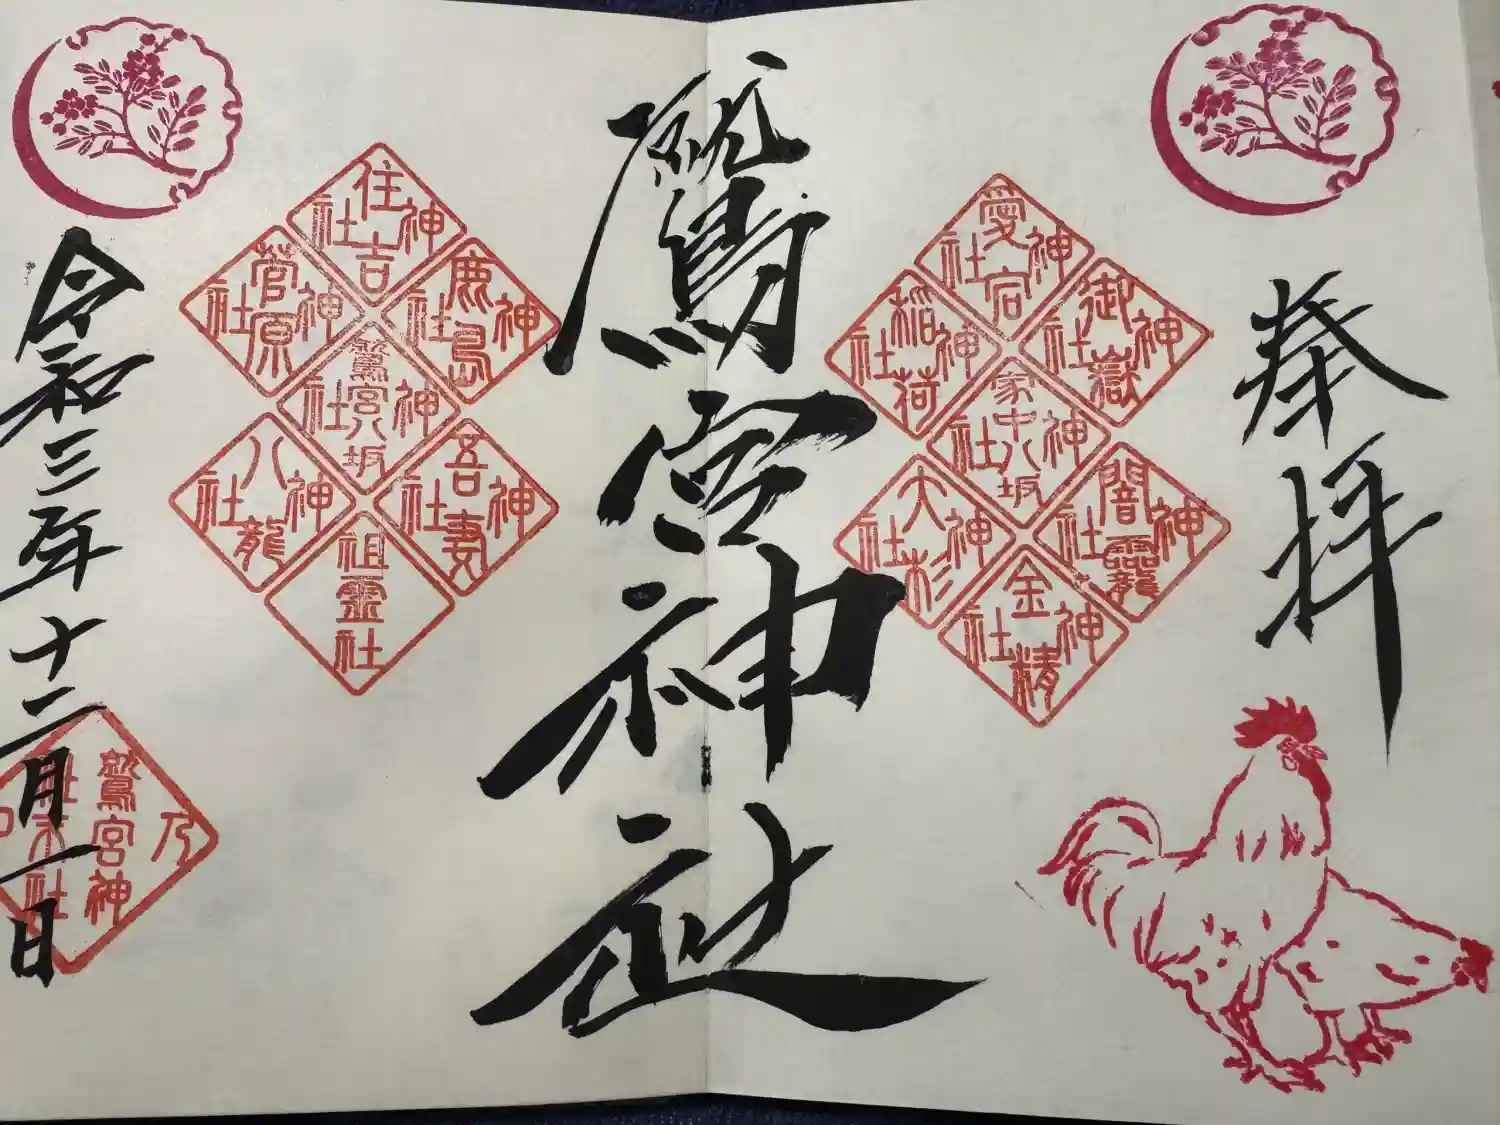 奉拝
愛宕神社
御嶽神社
稲荷神社
家中八坂神社
闇龗神社
大杉神社
金精神社
鷲宮神社
住吉神社
鹿島神社
菅原神社
鷲宮八坂神社
吾妻神社
八龍神社
祖靈社
令和三年十二月一日
乃
鷲宮神
社末社